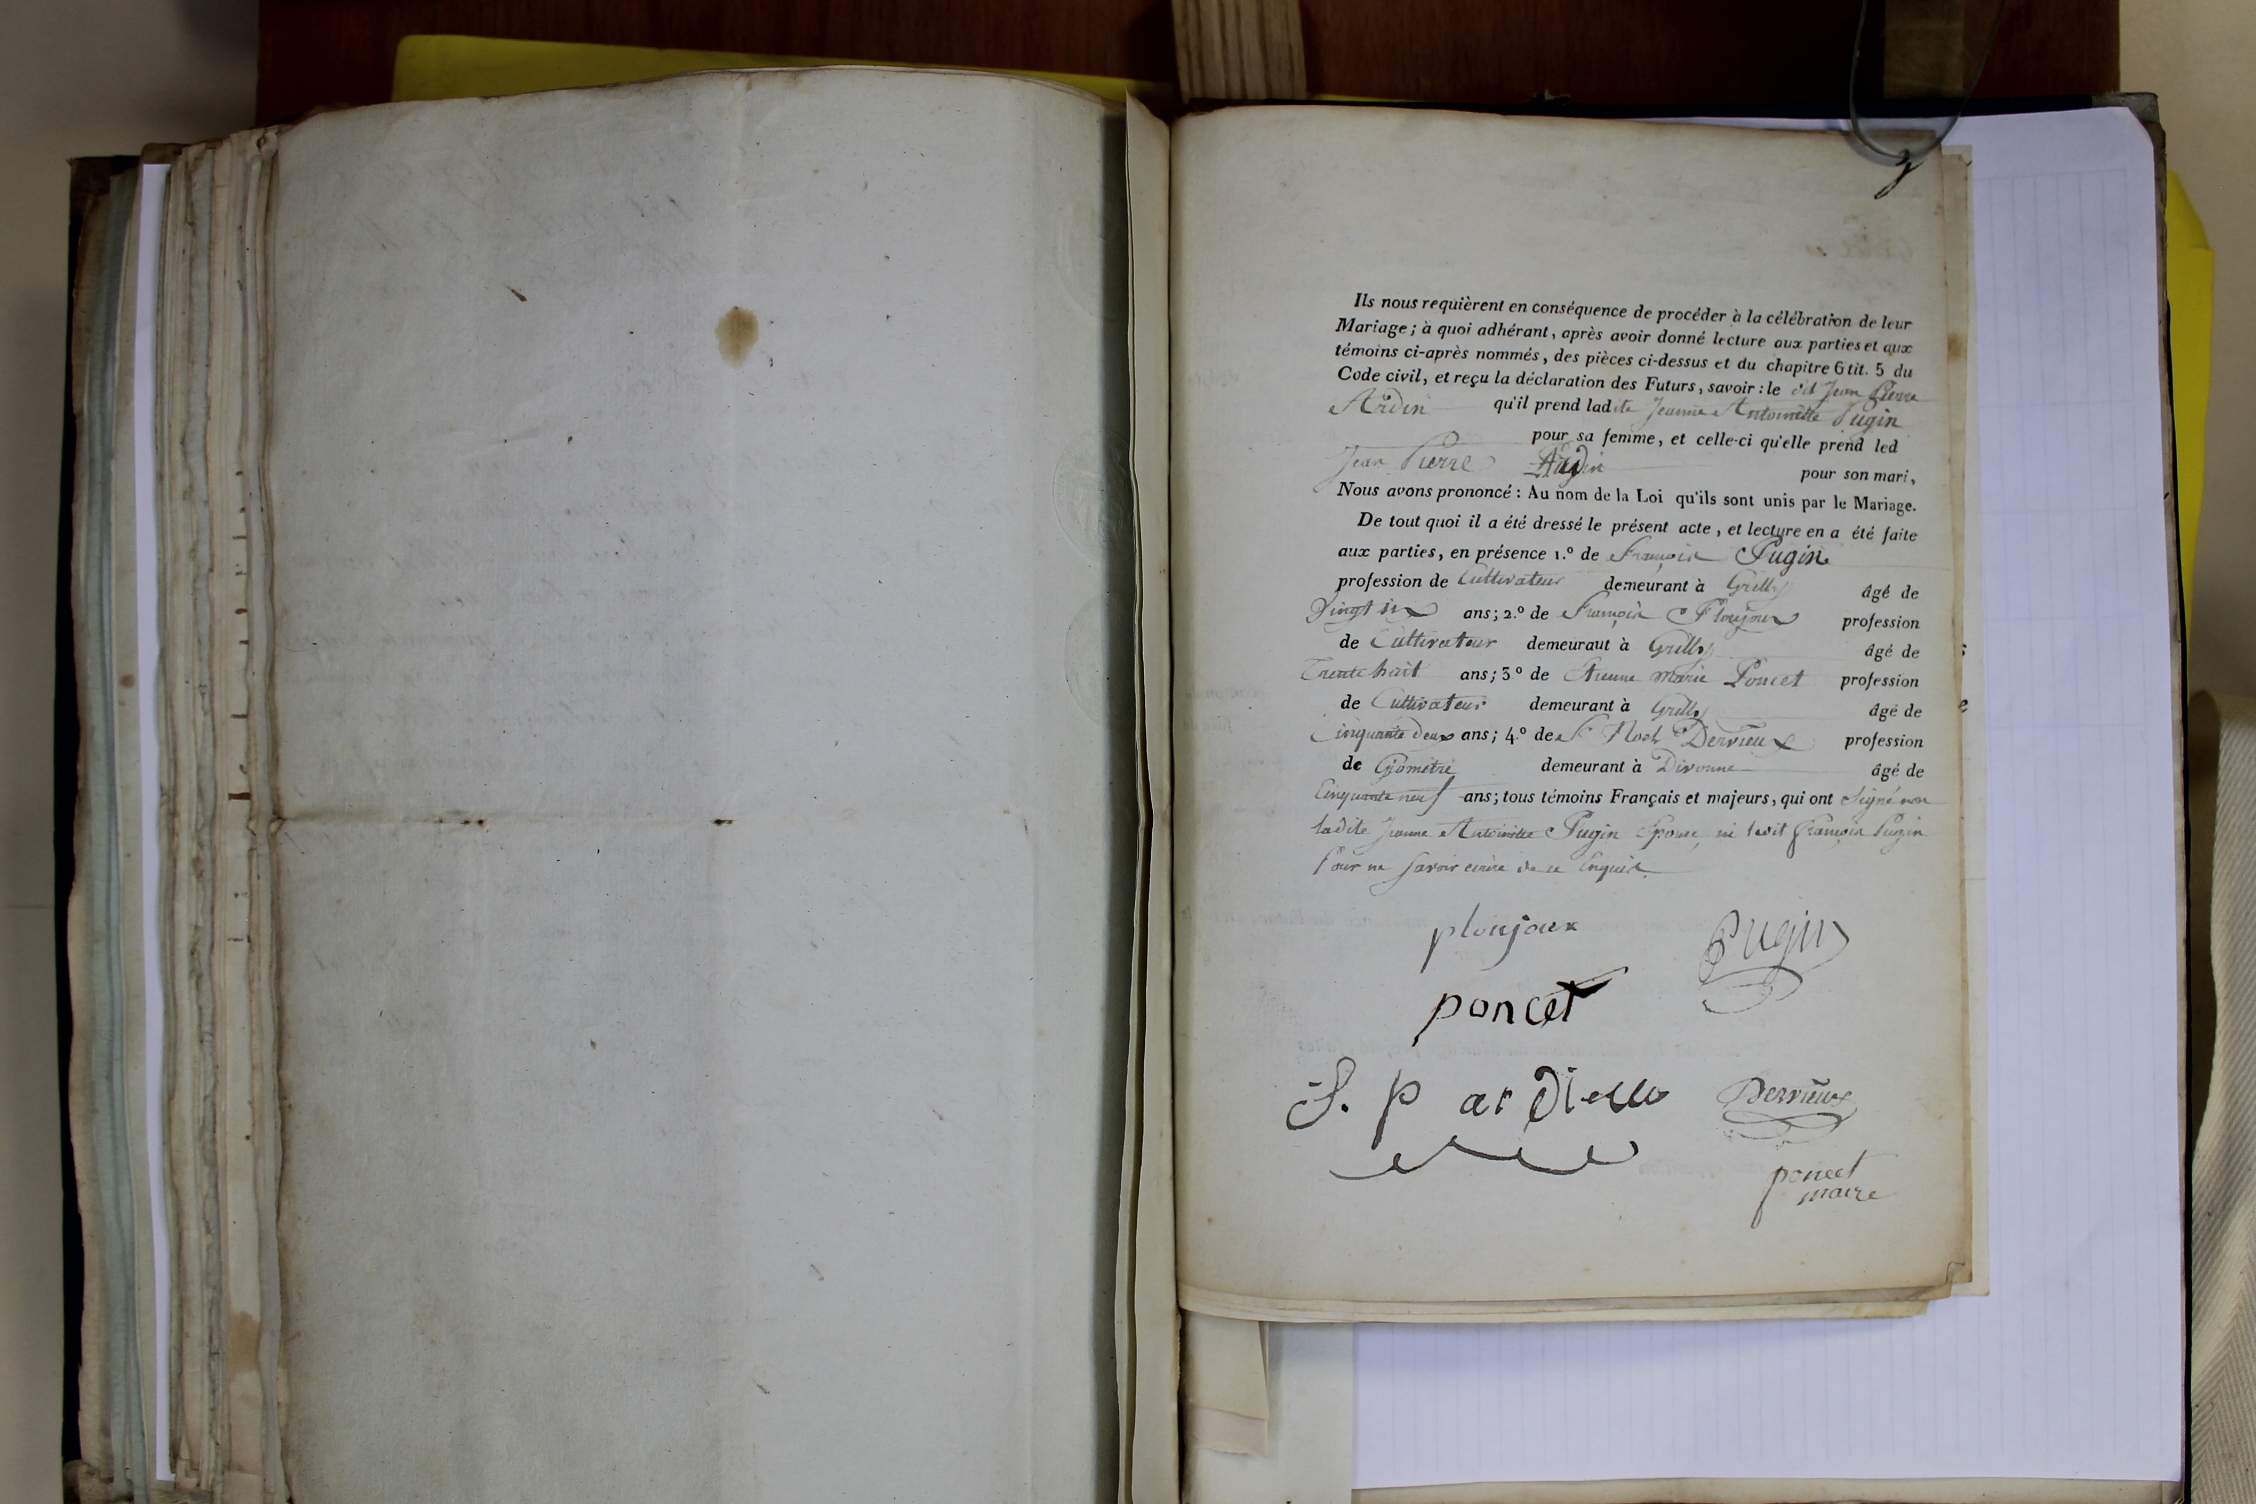 Ils nous requièrent en conséquence de procéder à la célébration de leur
Mariage; à quoi adhérant, après avoir donné lecture aux parties et aux
témoins ci-après nommés, des pièces ci-dessus et du chapitre 6 tit. 5 du
Code civil, et reçu la déclaration des Futurs, savoir: le dit Jean Pierre
Ardin qu'il prend ladite Jeanne Antoinette Pugin
pour sa femme, et celle-ci qu'elle prend led
Jean Pierre Ardin pour son mari,
Nous avons prononcé: Au nom de la Loi qu'ils sont unis par le Mariage.
De tout quoi il a été dressé le présent acte, et lecture en a été faite
aux parties, en présence 1.º de François Pugin
profession de Cultivateur demeurant à Grilly âgé de
Vingt six ans; 2.º de François Ploujoux profession
de Cultivateur demeuraut à Grilly âgé de
Trente huit ans; 3º de Etienne marie Poncet profession
de Cultivateur demeurant à Grilly âgé de
Cinquante deux ans; 4.º de Noel Derrieux profession
de Géomètre demeurant à Divonne âgé de
Cinquante neuf ans; tous témoins Français et majeurs, qui ont signé non
ladite Jeanne Antoinette Pugin Epouse, ni ledit François Pugin
Pour ne savoir ecrire de ce Enquis.
ploujoux
Pugin
poncet
J. p ar
Derrieux
poncet
maire